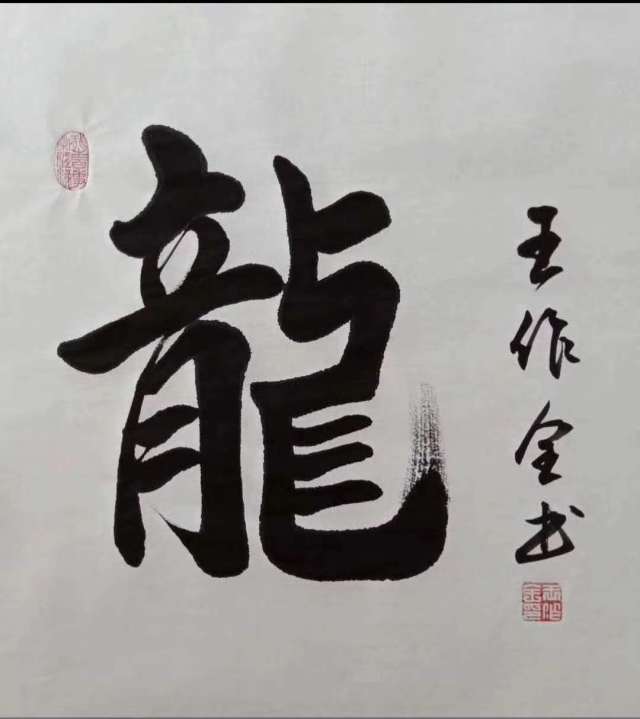 龍
王作全书